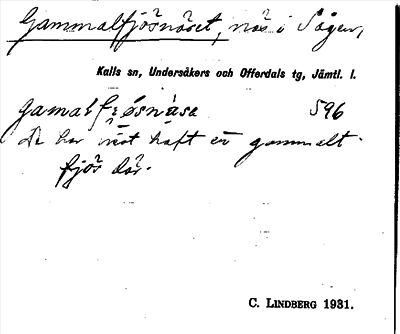 Gammalfjösnäset, näs i Sågen,
Kalls sn, Undersåkers och Offerdals tg, Jämtl. l.
gamalfjösnäse 596
De har visst haft ett gammalt
fjös där.
C. LINDBERG 1931.